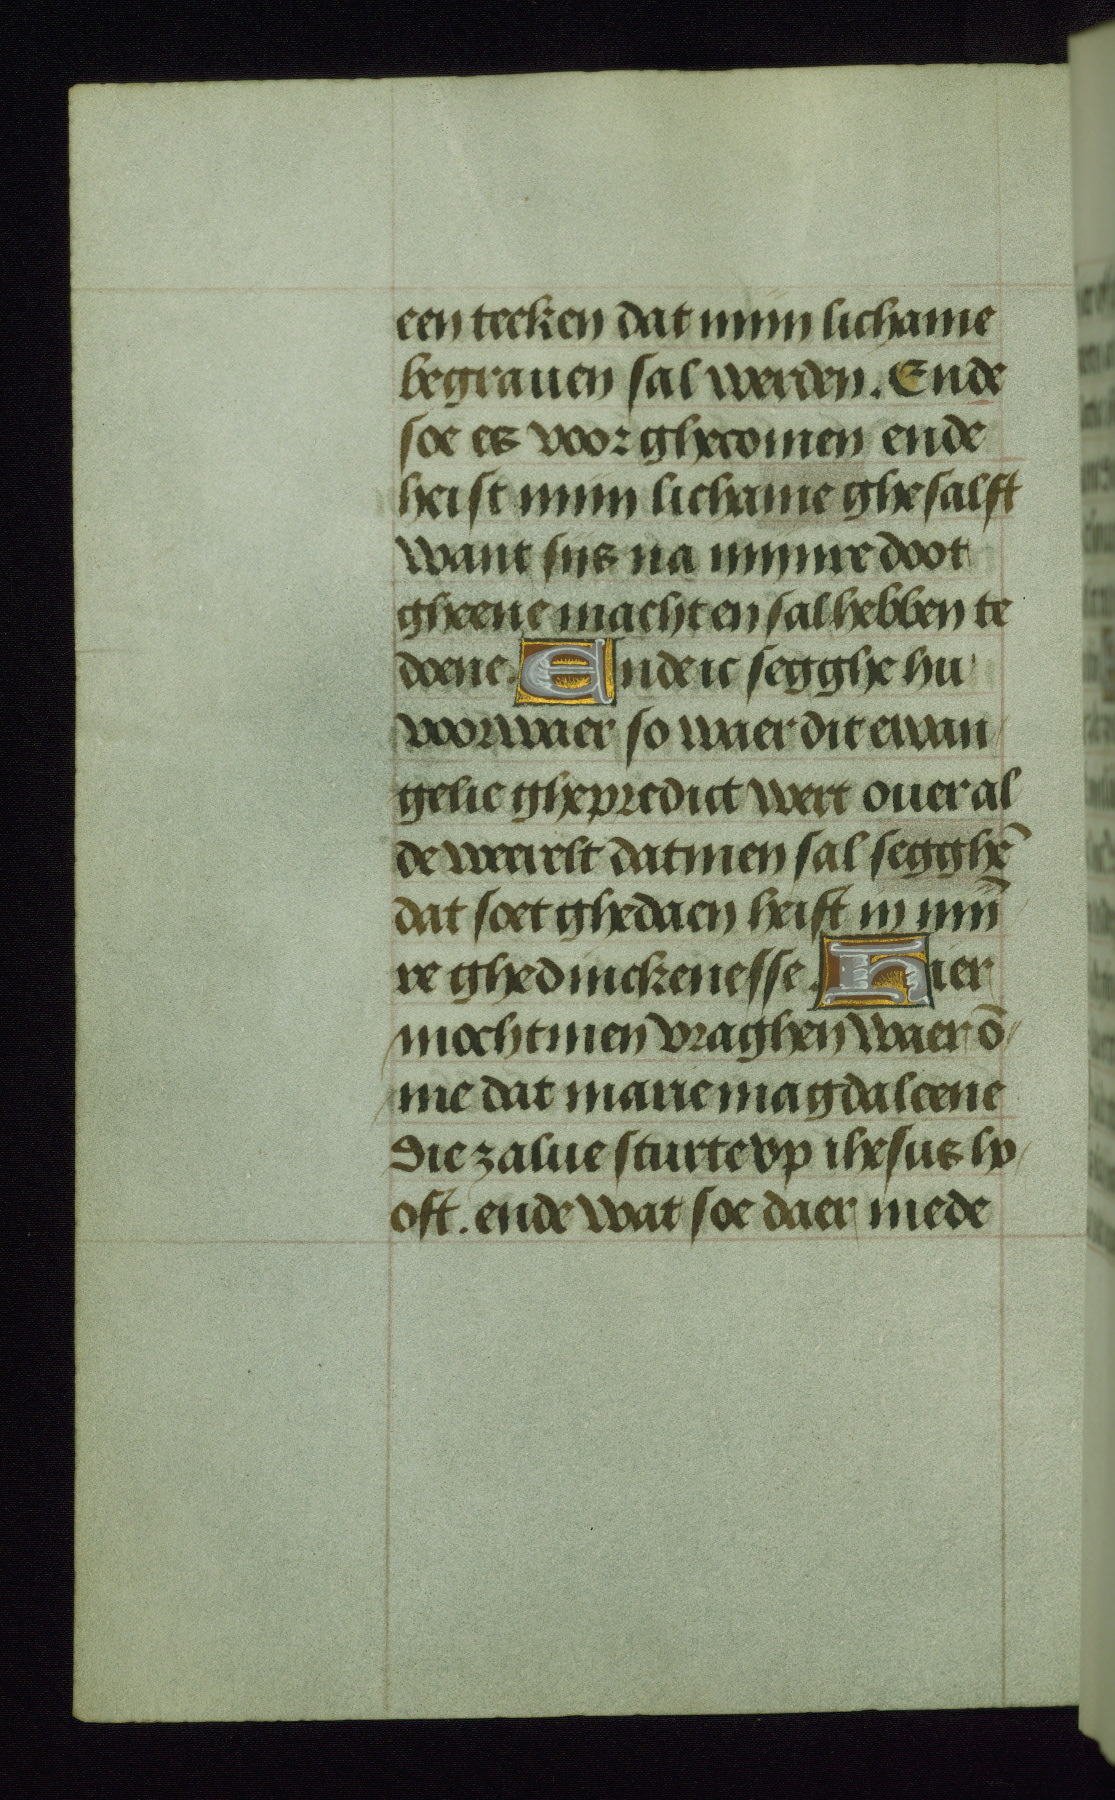 een teeken dat mijn lichame
begrauen sal werden. Ende
soe es voor ghecomen ende
heist mijn lichame ghesalft
want sijs na mijnre doot
gheene macht en sal hebben te
doene. Ende ic segghe hu
voorwaer so waer dit ewan
gelie ghepredict wert ouer al
de weerelt datmen sal segghē
dat soet ghedaen heift in mijn̄
re ghedinckenesse. Hier
mochtmen vraghen waer ō
me dat marie magdaleene
die zalue sturte vp ihesus ho
oft. ende wat soe daer mede